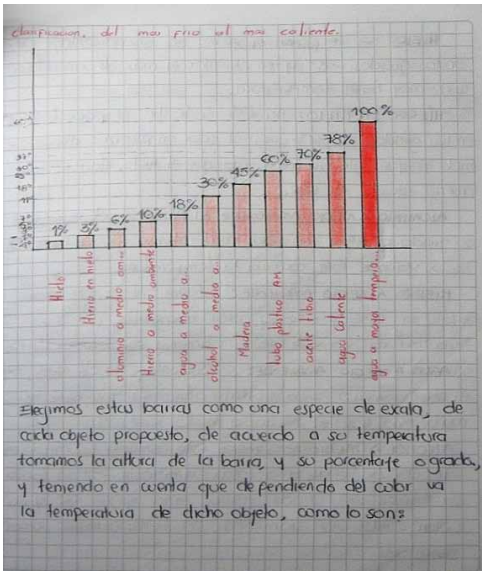 clasificacion, del mas frio al mas caliente.
100%
78%
70%
60%
45%
30%
18%
10%
6%
3%
1%
Hielo
Hierro en hielo
aluminio a medio am...
Hierro a medio ambiente
agua a medio a..
alcohol a medio a..
Madera
tubo plastico AM
aceite tibio
agua caliente
agua a mayor tempera...
Elegimos estas barras como una especie de exala, de
cada objeto propuesto, de acuerdo a su temperatura
tomamos la altura de la barra, y su porcentaje o grado,
y teniendo en cuenta que dependiendo del color va
la temperatura de dicho objeto, como lo son: